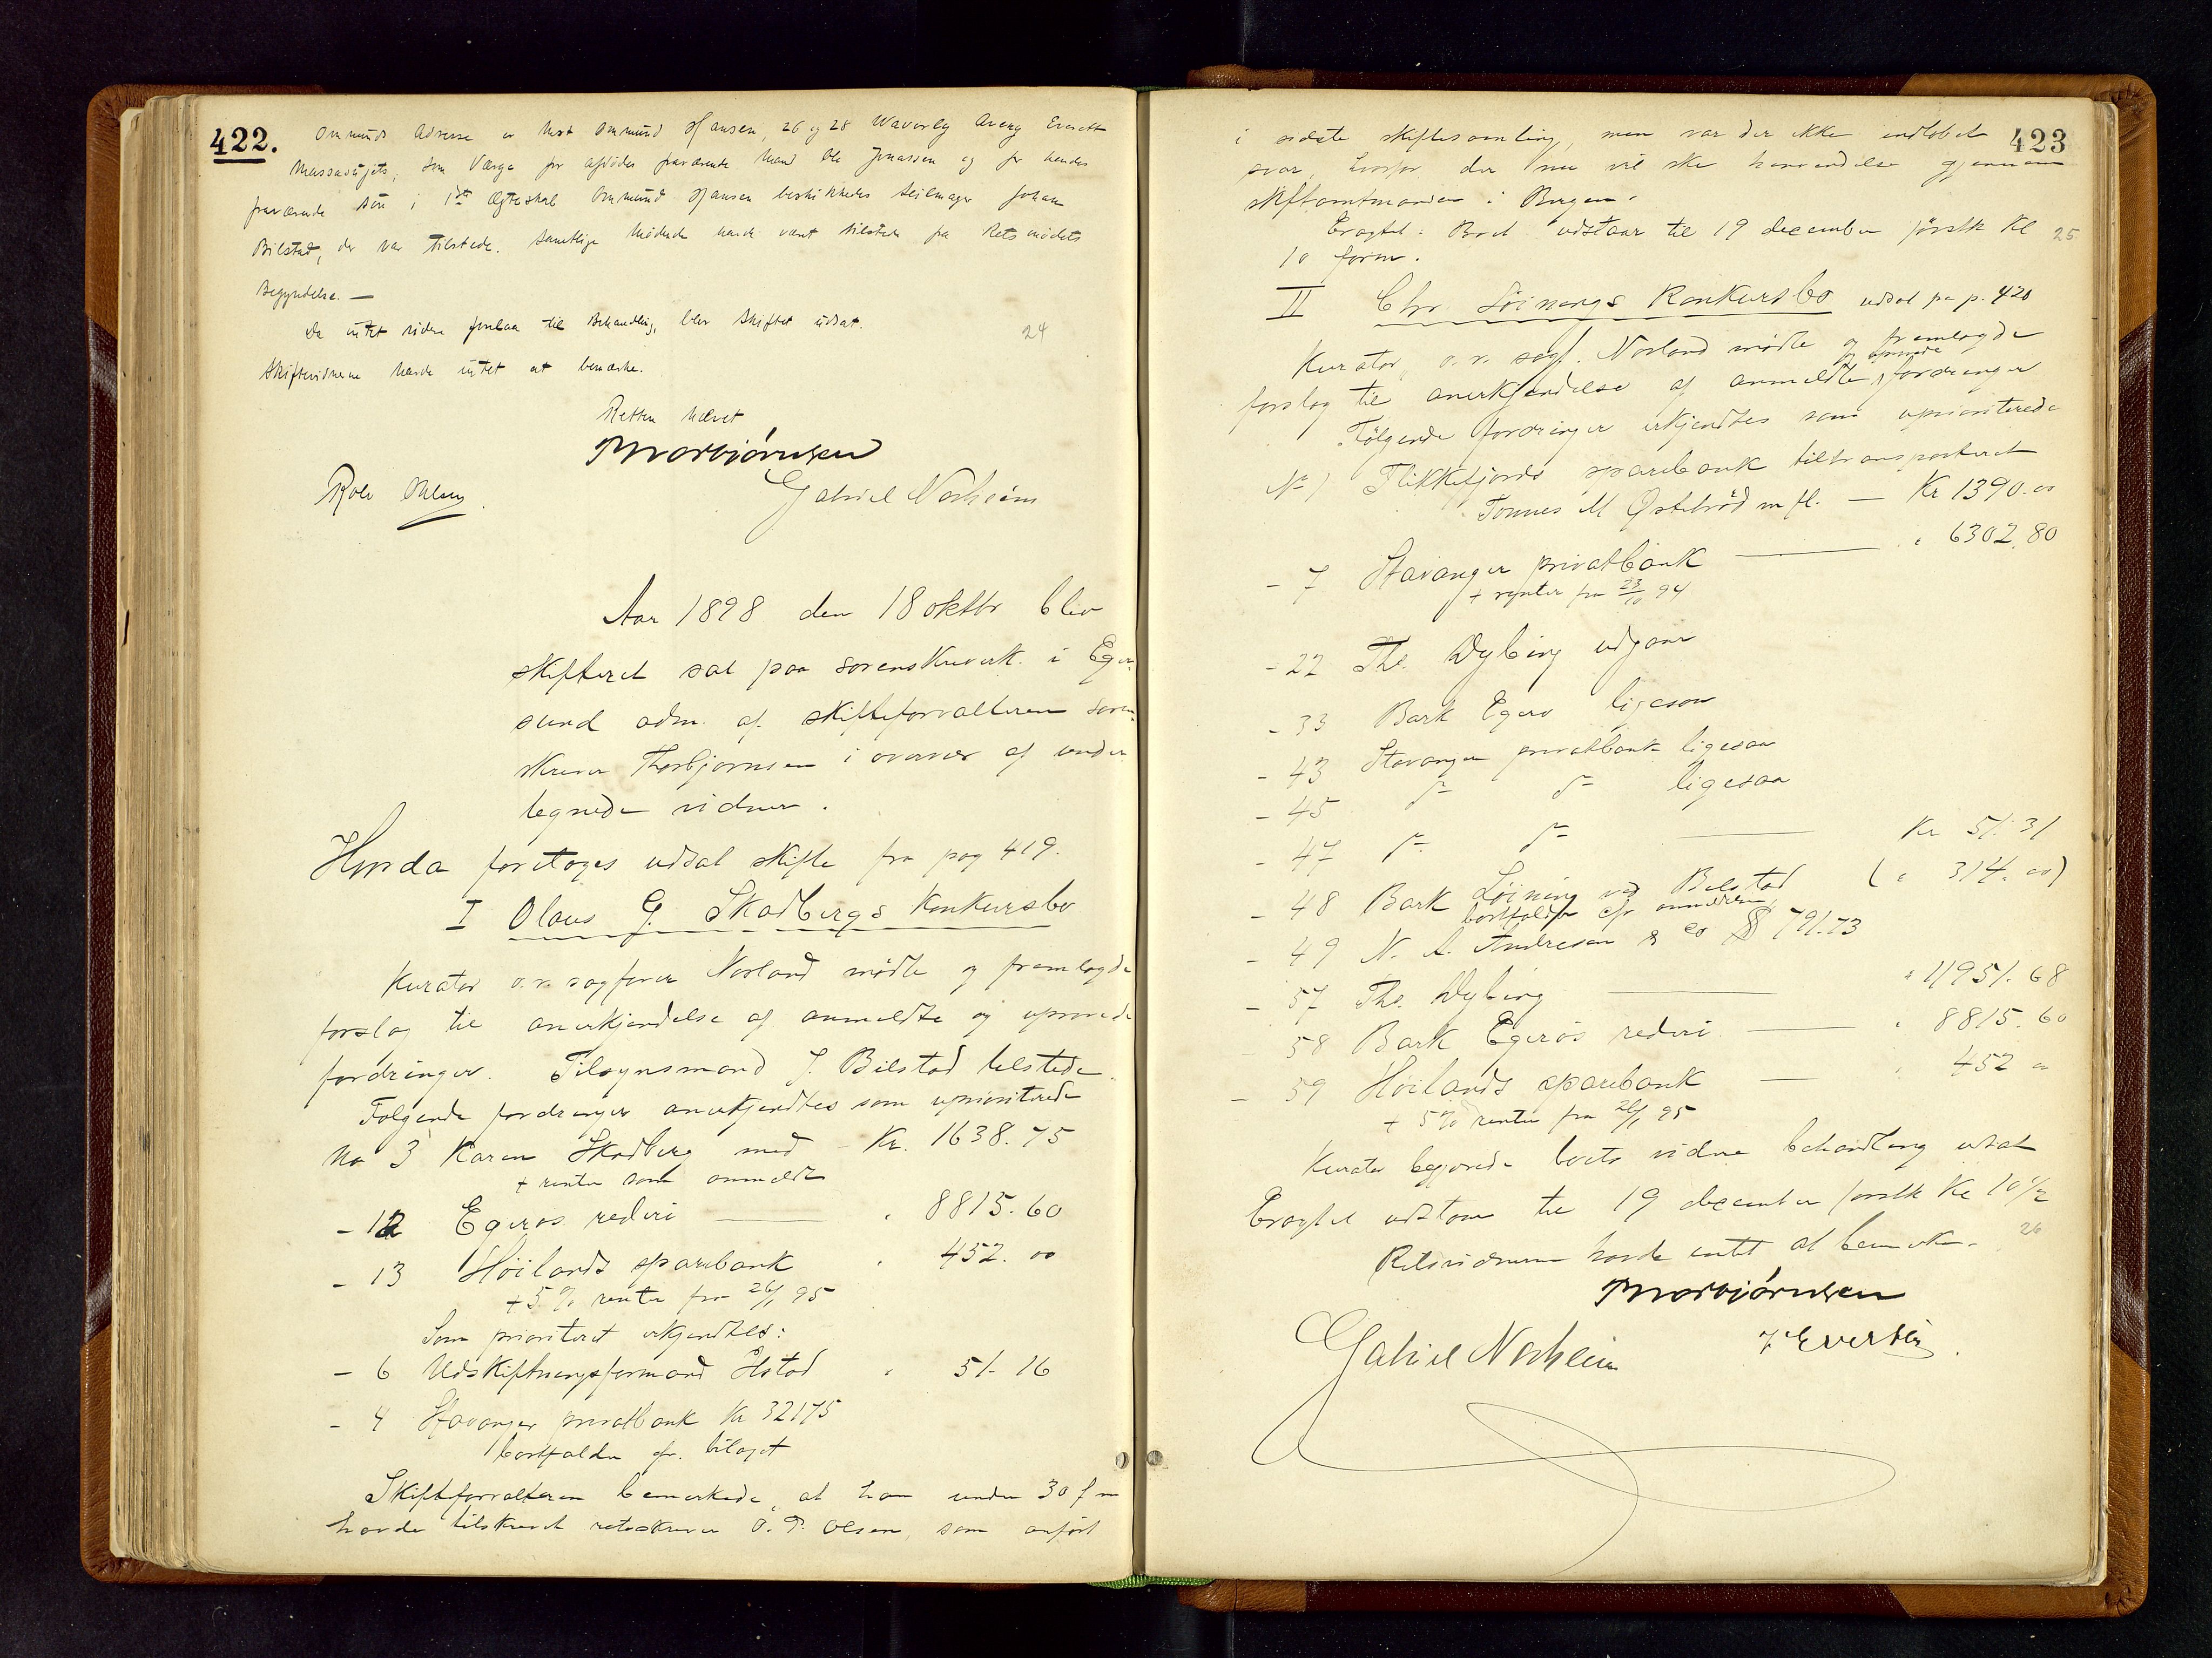 422.
Ommunds Adresse er Mr Ommund Hansen, 26 og 28 Waverly Aveny Everett
Massasusjets, som Værge for afdødes fraværende Mand Ole Jonassen og for hendes
fraværende Søn i 1ste Ægteskab Ommund Hansen beskikkedes Seilmager Johan
Bilstad, der var tilstede. Samtlige Mødende havde været tilstede fra Retsmødets
Begyndelse. —
Da intet videre forelaa til Behandling, blev Skiftet udsat.
24
Skiftevidnerne havde intet at bemærke.
Retten hævet
Thorbjørnsen
Rolv
Gabriel Norheim
Aar 1898 den 18 oktbr blev
skifteret sat paa sorenskriverk. i Eger-
sund adm. af skifteforvalteren soren-
skriver Thorbjørnsen i overvær af under-
tegnede vidner.
Hvorda foretoges udsat skifte fra pag 419.
I Olaus G. Skadbergs Konkursbo
Kurator o.r. sagfører Norland mødte og fremlagde
forslag til anerkjendelse af anmeldte og uprøvede
fordringer. Tilsynsmand J. Bilstad tilstede.
Følgende fordringer anerkjendtes som uprioriterede
No 3 Karen Skadberg med - Kr. 1638.75
+ renter som anmeldt
- 12 Egerøs rederi — " 8815.60
- 13 Høilands sparebank " 452.00
+ 5 % renter fra 26/1 95
Som prioriteret erkjendtes:
- 6 Udskiftningsformand Østad " 51.16
- 4 Stavanger privatbank Kr 32175
bortfalder efr. bilaget
Skifteforvalteren bemerkede, at han under 30 f m
havde tilskrevet retsskriver O. P. Olsen, som anført
423
i sidste skiftesamling, men var der ikke indløbet
svar, hvorfor der nu vil ske henvendelse gjennem
stiftamtmanden i Bergen.
Eragtet: Boet udstaar til 19 december førstk Kl
25
10 form.
II Chr. Løinings Konkursbo udsat fra p. 420
Kurator, o.r. sagf. Norland mødte og fremlagde
forslag til anerkjendelse af anmeldte og uprøvede fordringer
Følgende fordringer erkjendtes som uprioriterede
No 1 Flikkefjords sparebank tiltransporteret
Tønnes M Østebrød m fl. — Kr 1390.00
- 7 Stavanger privatbank — " 6302.80
+ renter fra 23/10 94
- 22 Th. Dybing udgaar
- 33 Bark Egerø ligesaa
- 43 Stavanger privatbank ligesaa
- 45 do do ligesaa
- 47 do do — Kr 51.31
- 48 Bark Løining ved Bilstad ( " 314.00)
bortfalder efr anmelderen
- 49 N. A. Andresen & Co 791.73
- 57 Th. Dybing — " 11951.68
- 58 Bark Egerøs rederi — " 8815.60
- 59 Høilands sparebank — " 452 "
+ 5% renter fra 26/1 95
Kurator begjærede boets videre behandling udsat
Eragtet udstaar til 19 december førstk Kl 10 1/2
26
Retsvidnerne havde intet at bemerke.
Thorbjørnsen
Gabriel Norheim